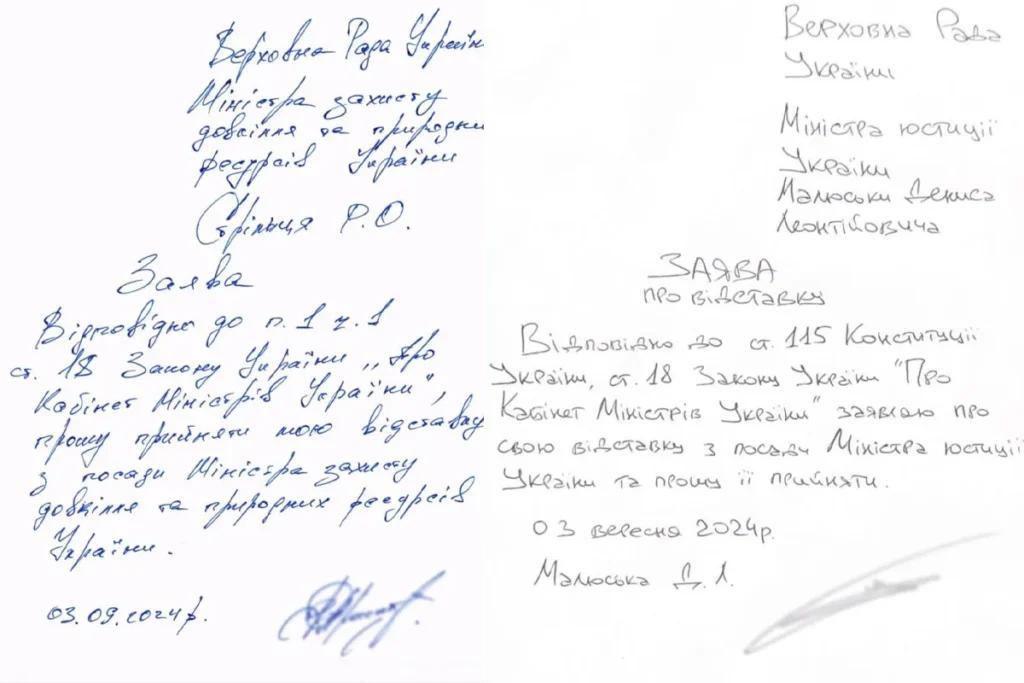 Верховна Рада Україн
Міністра захисту
довкілля та природни
ресурсів України
Стрільця Р.О.
Заява
Відповідно до п.1 ч.1
ст. 18 Закону України „Про
Кабінет Міністрів України",
прошу прийняти мою відставку
з посади Міністра захисту
довкілля та природних ресурсів
України.
03.09.2024р.
Верховна Рада
України
Міністра юстиції
України
Малюськи Дениса
Леонтійовича
ЗАЯВА
про відставку
Відповідно до ст. 115 Конституції
України, ст. 18 Закону України "Про
Кабінет Міністрів України" заявляю про
свою відставку з посади Міністра юстиції
України та прошу її прийняти.
03 вересня 2024р.
Малюська Д.Л.